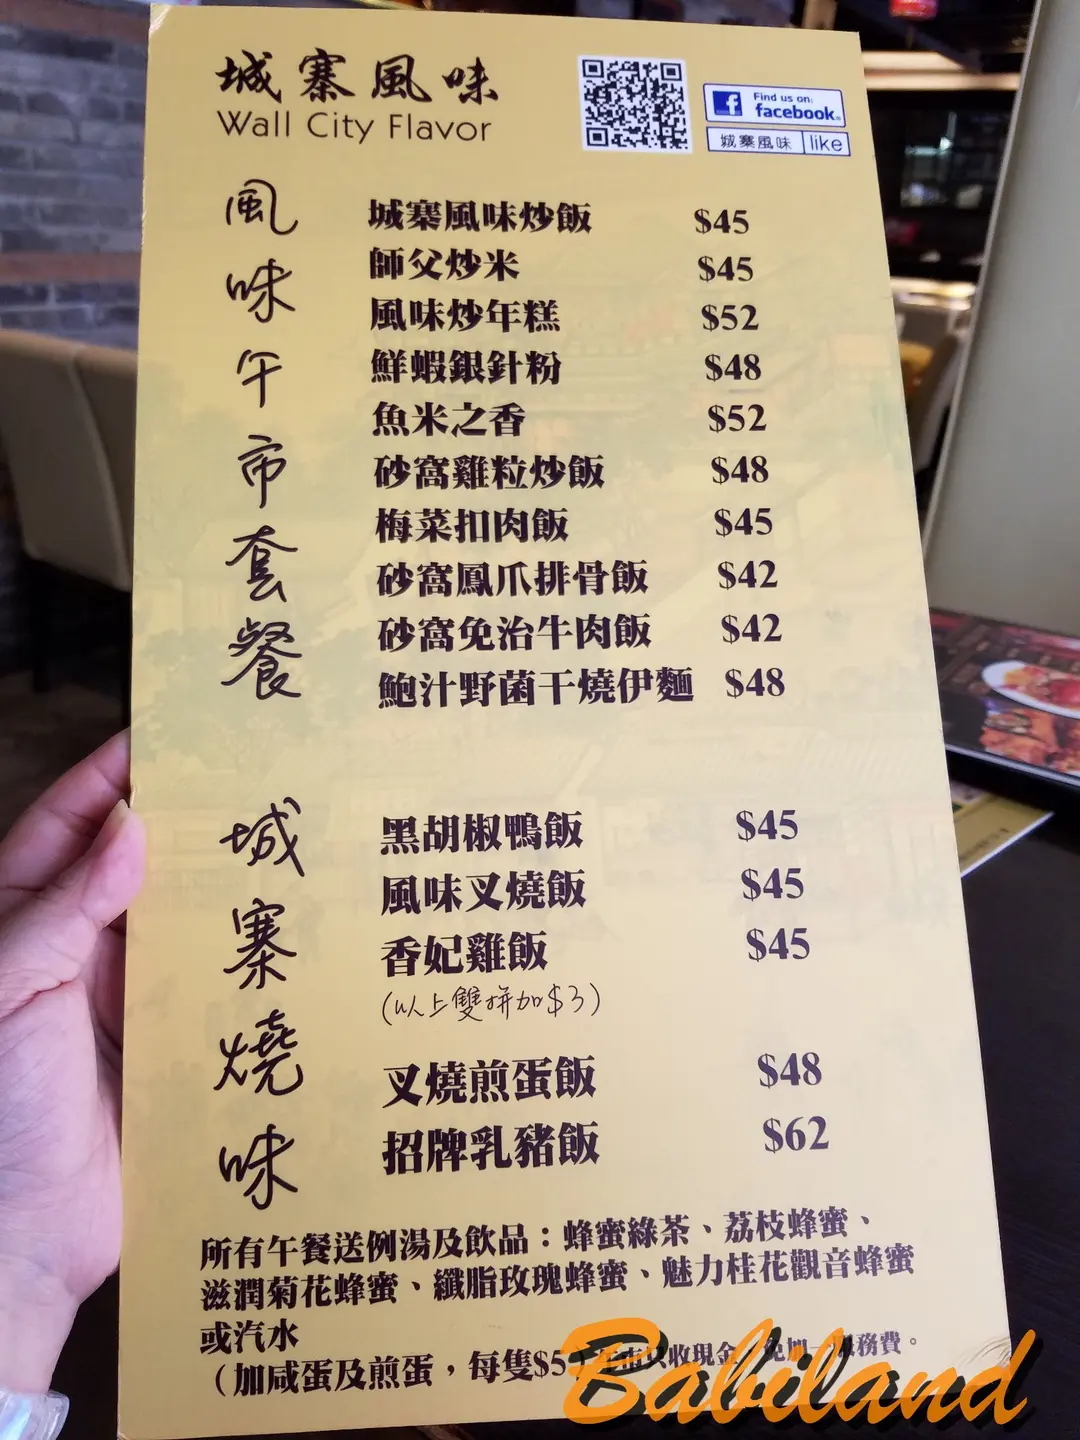 城寨風味
Wall City Flavor
Find us on:
facebook
城寨風味 like
風味午市套餐
城寨風味炒飯 $45
師父炒米 $45
風味炒年糕 $52
鮮蝦銀針粉 $48
魚米之香 $52
砂窩雞粒炒飯 $48
梅菜扣肉飯 $45
砂窩鳳爪排骨飯 $42
砂窩免治牛肉飯 $42
鮑汁野菌干燒伊麵 $48
城寨燒味
黑胡椒鴨飯 $45
風味叉燒飯 $45
香妃雞飯 $45
(以上雙拼加$3)
叉燒煎蛋飯 $48
招牌乳豬飯 $62
所有午餐送例湯及飲品：蜂蜜綠茶、荔枝蜂蜜、
滋潤菊花蜂蜜、纖脂玫瑰蜂蜜、魅力桂花觀音蜂蜜
或汽水
（加咸蛋及煎蛋，每隻$5 市只收現金 免加一服務費。
Babiland